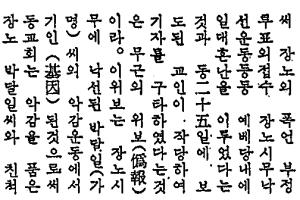 써 장노의 폭언 부정
투표의접수 장노시무낙
선운동등등 예베당내에
일대혼난을 이루었다는
것과 동二十五일에 보
도된 교인이 작당하여
기자를 구타하였다는것
은 무근의 위보(僞報)
이라。이위보는 장노시
무에 낙선된 박달일(가
명)씨의 악감운동에서
기인(基因)된것으로써
동교회는 악감을 품은
장노 박달일씨와 친척